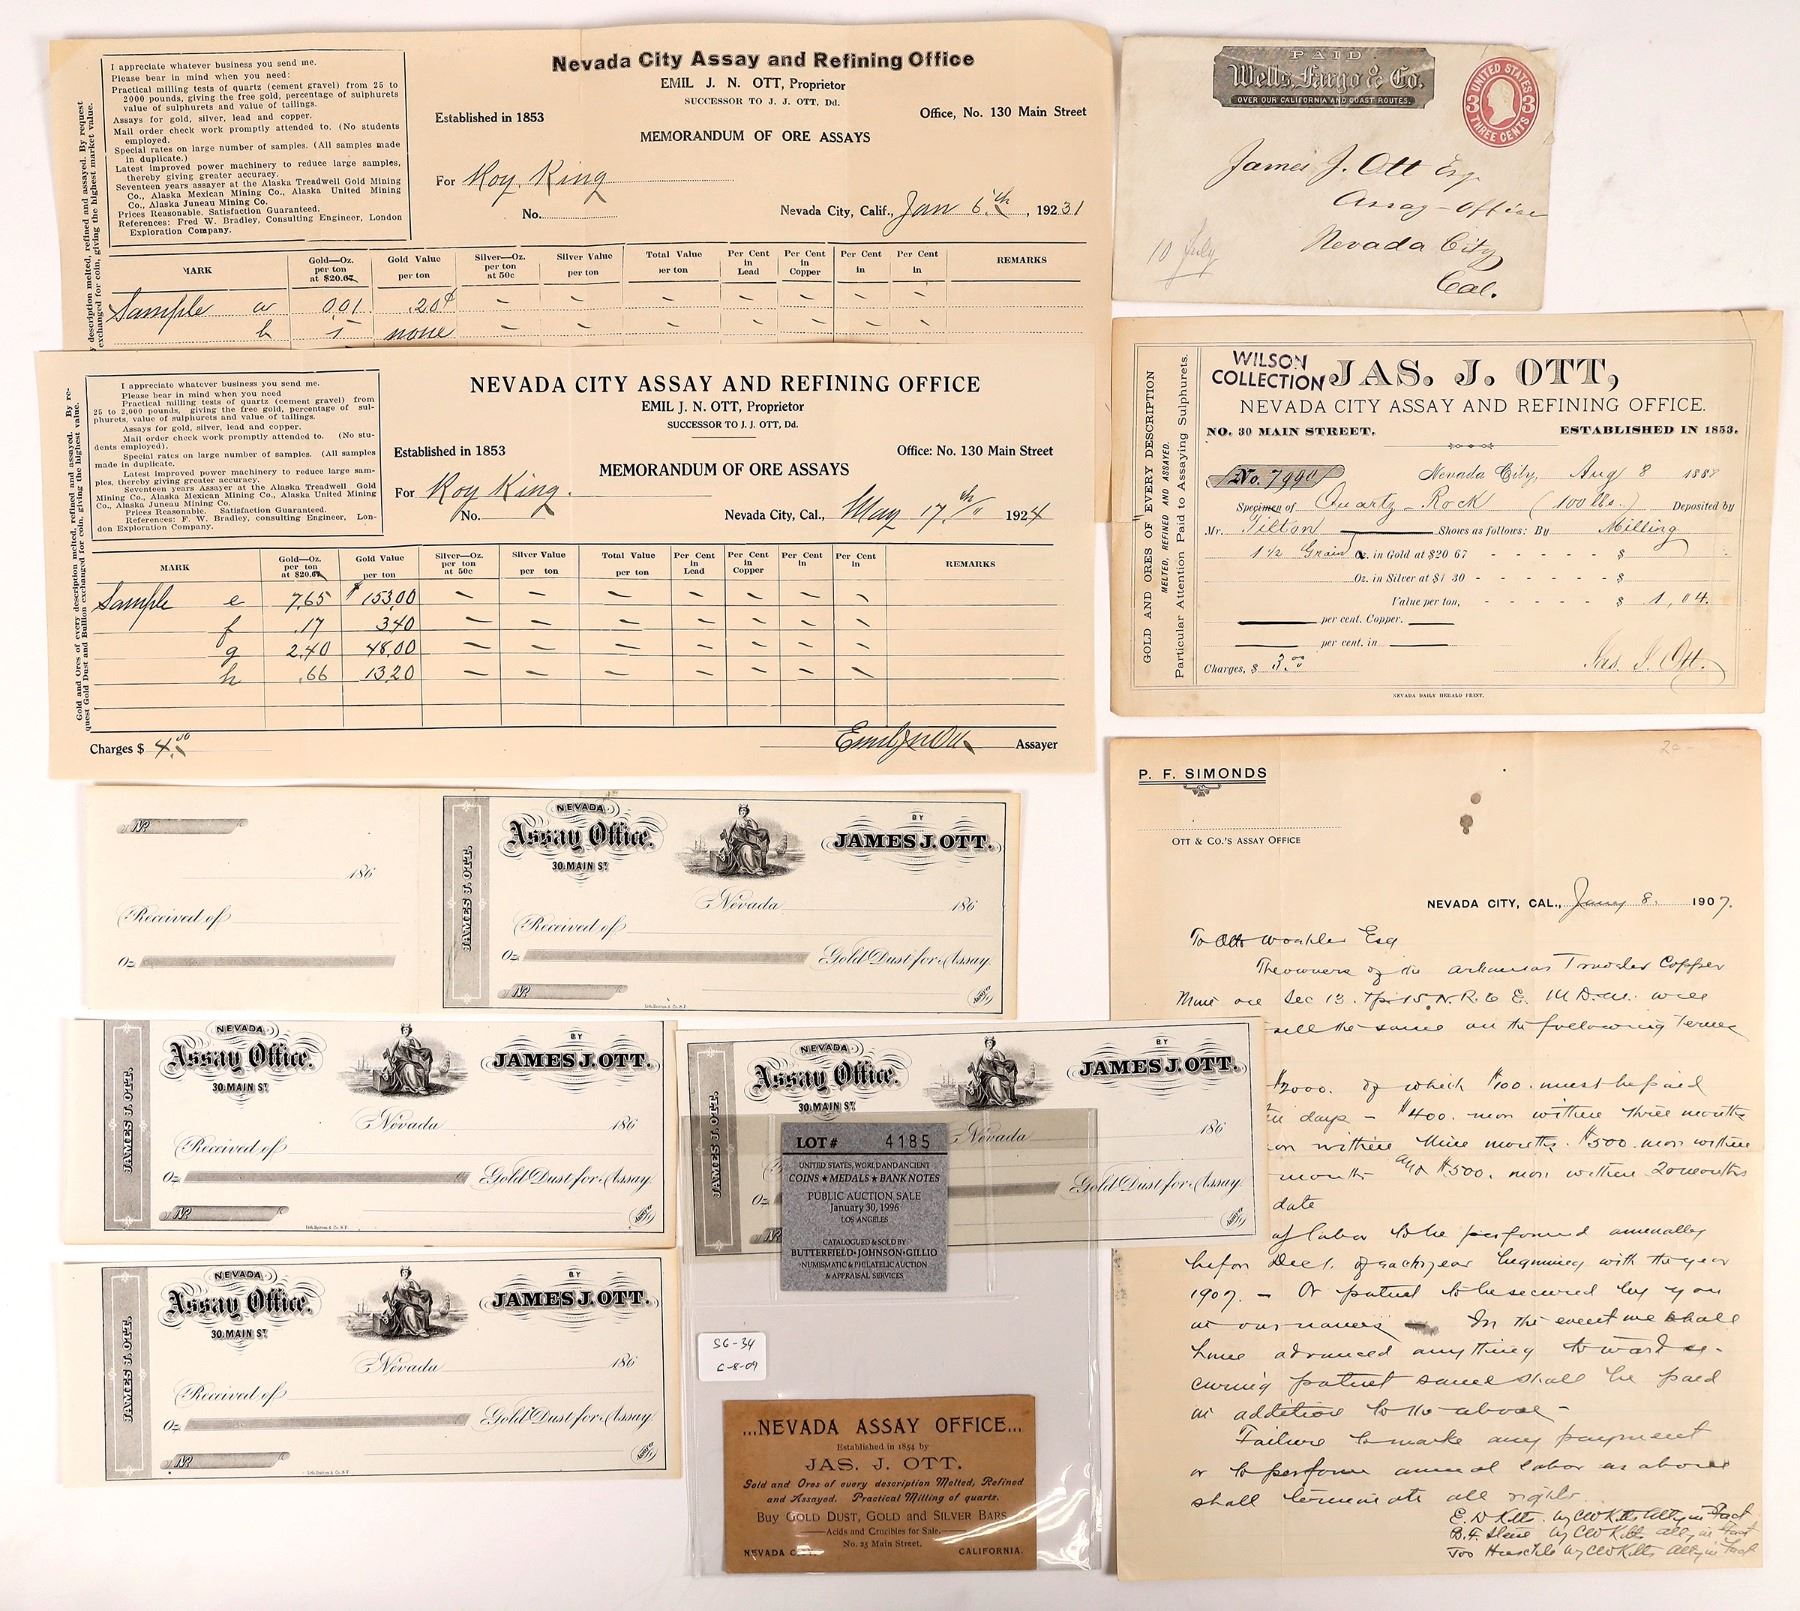 Nevada City Assay and Refining Office
EMIL J. N. OTT, Proprietor
SUCCESSOR TO J. J. OTT, Dd.
Established in 1853
Office, No. 130 Main Street
MEMORANDUM OF ORE ASSAYS
I appreciate whatever business you send me.
Please bear in mind when you need:
Practical milling tests of quartz (cement gravel) from 25 to
2000 pounds, giving the free gold, percentage of sulphurets
value of sulphurets and value of tailings.
Assays for gold, silver, lead and copper.
Mail order check work promptly attended to. (No students
employed.)
Special rates on large number of samples. (All samples made
in duplicate.)
Latest improved power machinery to reduce large samples,
thereby giving greater accuracy.
Seventeen years assayer at the Alaska Treadwell Gold Mining
Co., Alaska Mexican Mining Co., Alaska United Mining
Co., Alaska Juneau Mining Co.
Prices Reasonable. Satisfaction Guaranteed.
References: Fred W. Bradley, Consulting Engineer, London
Exploration Company.
description melted, refined and assayed. By request
exchanged for coin, giving the highest market value.
For Roy King
No.
Nevada City, Calif., Jan 6th, 19231
MARK
Gold—Oz. per ton at $20.67
Gold Value per ton
Silver—Oz. per ton at 50c
Silver Value per ton
Total Value per ton
Per Cent in Lead
Per Cent in Copper
Per Cent in
Per Cent in
REMARKS
Sample a 0.01 .20¢ – – – – – – –
b – none – – – – – – –
NEVADA CITY ASSAY AND REFINING OFFICE
EMIL J. N. OTT, Proprietor
SUCCESSOR TO J. J. OTT, Dd.
Established in 1853
Office: No. 130 Main Street
MEMORANDUM OF ORE ASSAYS
I appreciate whatever business you send me.
Please bear in mind when you need
Practical milling tests of quartz (cement gravel) from
25 to 2,000 pounds, giving the free gold, percentage of sul-
phurets, value of sulphurets and value of tailings.
Assays for gold, silver, lead and copper.
Mail order check work promptly attended to. (No stu-
dents employed).
Special rates on large number of samples. (All samples
made in duplicate.
Latest improved power machinery to reduce large sam-
ples, thereby giving greater accuracy.
Seventeen years Assayer at the Alaska Treadwell Gold
Mining Co., Alaska Mexican Mining Co., Alaska United Mining
Co., Alaska Juneau Mining Co.
Prices Reasonable. Satisfaction Guaranteed.
References: F. W. Bradley, consulting Engineer, Lon-
don Exploration Company.
Gold and Ores of every description melted, refined and assayed. By re-
quest Gold Dust and Bullion exchanged for coin, giving the highest market value.
For Roy King.
No.
Nevada City, Cal., May 17th, 1924
MARK
Gold—Oz. per ton at $20.67
Gold Value per ton
Silver—Oz. per ton at 50c
Silver Value per ton
Total Value per ton
Per Cent in Lead
Per Cent in Copper
Per Cent in
Per Cent in
REMARKS
Sample e 7.65 $153.00 – – – – – – –
f .17 3.40 – – – – – – –
g 2.40 48.00 – – – – – – –
h .66 13.20 – – – – – – –
Charges $ 4.00
Emil J N Ott Assayer
PAID
Wells, Fargo & Co.
OVER OUR CALIFORNIA AND COAST ROUTES.
UNITED STATES
3 3
THREE CENTS
James J. Ott Esq.
Assay-Office
Nevada City
Cal.
10 July
WILSON
COLLECTION
JAS. J. OTT,
NEVADA CITY ASSAY AND REFINING OFFICE.
NO. 30 MAIN STREET.
ESTABLISHED IN 1853.
GOLD AND ORES OF EVERY DESCRIPTION
MELTED, REFINED AND ASSAYED.
Particular Attention Paid to Assaying Sulphurets.
No. 7990
Nevada City, Aug 8 1888
Specimen of Quartz-Rock (100 lbs.) Deposited by
Mr. Tilton Shows as follows: By Milling
1 1/2 Grain Oz. in Gold at $20 67 - - - - - $
Oz. in Silver at $1 30 - - - - - - $
Value per ton, - - - - - $ 1,04.
per cent. Copper.
per cent. in
Charges, $ 3.00
Jas. J. Ott.
NEVADA DAILY HERALD PRINT.
P. F. SIMONDS
OTT & CO.'S ASSAY OFFICE
20-
NEVADA CITY, CAL., Jany 8. 1907.
To Otto Esq
The owners of the Arkansas Traveler Copper
Mine on Sec 13. Tp 15. N. R. 6 E. M.D.M. will
sell the same on the following terms
$2000. of which $100. must be paid
in days – $400. mon within three months
on within nine months. $500. mon within
months and $500. mon within 20 months
date
of labor to be performed annually
before Dec 1. of each year beginning with the year
1907. – Or patent to be secured by you
in our names In the event we shall
have advanced anything toward se-
curing patent same shall be paid
in addition to the above –
Failure to make any payment
or to perform annual labor as above
shall terminate all rights.
E. W Kitts. by CW Kitts Atty in Fact
B. F. by CW Kitts Atty in Fact
by CW Kitts Atty in Fact
No
186
Received of
Oz.
JAMES J. OTT.
NEVADA
Assay Office.
30. MAIN ST.
BY
JAMES J. OTT.
Nevada 186
Received of
Oz. Gold Dust for Assay.
No
Lith. Britton & Co. S.F.
JAMES J. OTT.
NEVADA
Assay Office.
30. MAIN ST.
BY
JAMES J. OTT.
Nevada 186
Received of
Oz. Gold Dust for Assay
No
Lith. Britton & Co. S.F.
JAMES J. OTT.
NEVADA
Assay Office.
30. MAIN ST.
BY
JAMES J. OTT.
Nevada 186
Oz. Gold Dust for Assay
No
LOT # 4185
UNITED STATES, WORLD AND ANCIENT
COINS ★ MEDALS ★ BANK NOTES
PUBLIC AUCTION SALE
January 30, 1996
LOS ANGELES
CATALOGUED & SOLD BY
BUTTERFIELD • JOHNSON • GILLIO
NUMISMATIC & PHILATELIC AUCTION
& APPRAISAL SERVICES
JAMES J. OTT.
NEVADA
Assay Office.
30. MAIN ST.
BY
JAMES J. OTT.
Nevada 186
Received of
Oz. Gold Dust for Assay
No
Lith. Britton & Co. S.F.
SG-34
6-8-09
...NEVADA ASSAY OFFICE...
Established in 1854 by
JAS. J. OTT.
Gold and Ores of every description Melted, Refined
and Assayed. Practical Milling of quartz.
Buy GOLD DUST, GOLD and SILVER BARS
Acids and Crucibles for Sale.
No. 25 Main Street.
NEVADA CALIFORNIA.